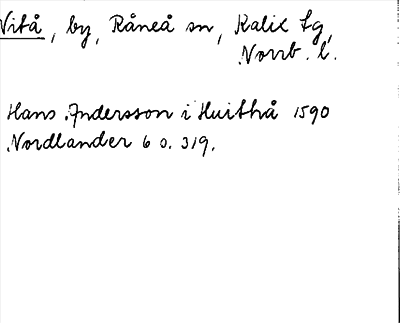 Vitå, by, Råneå sn, Kalix tg,
Norrb. l.
Hans Andersson i Huithå 1590
Nordlander 6 s. 319.